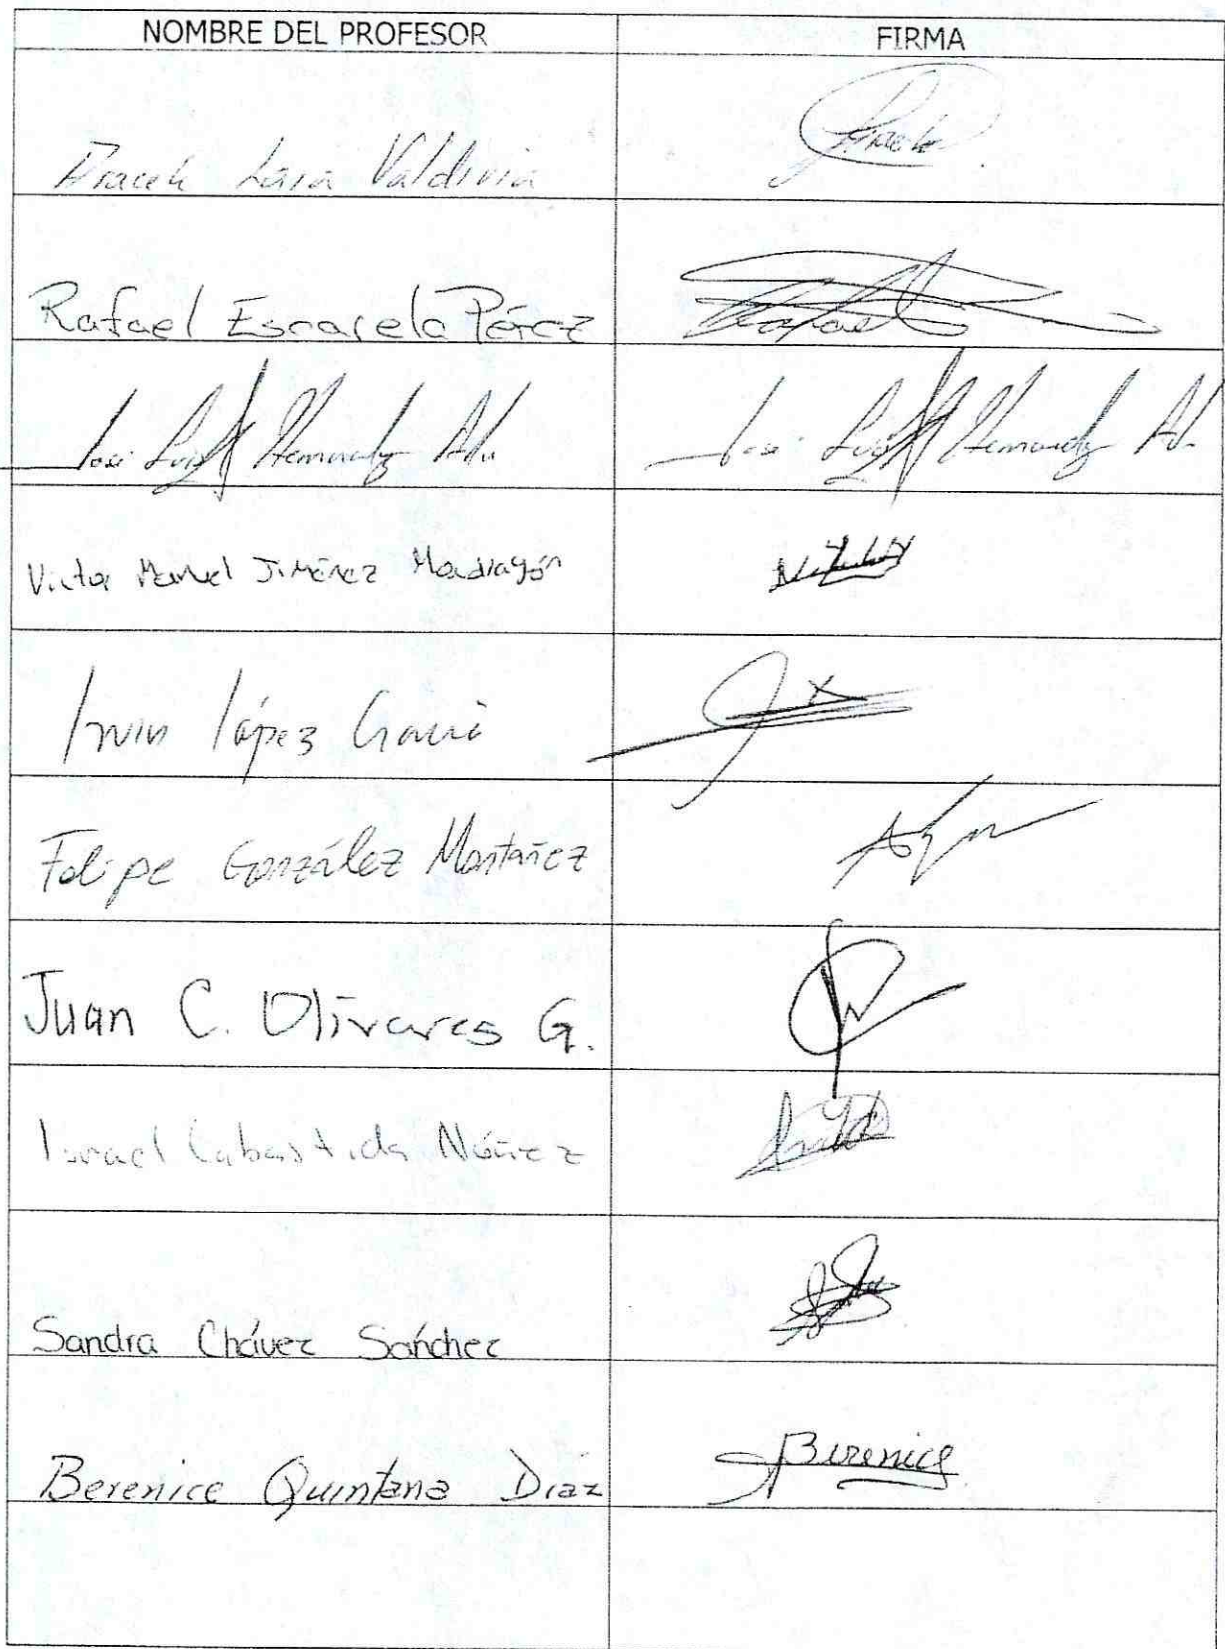 NOMBRE DEL PROFESOR FIRMA
Araceli Lara Valdivia Araceli
Rafael Escarela Pérez Rafael
José Luis Hernández José Luis Hernández
Victor Manuel Jiménez Mondragón
Irvin López García
Felipe González Montañez
Juan C. Olivares G.
Israel Labastida Núñez
Sandra Chávez Sánchez
Berenice Quintana Díaz Berenice